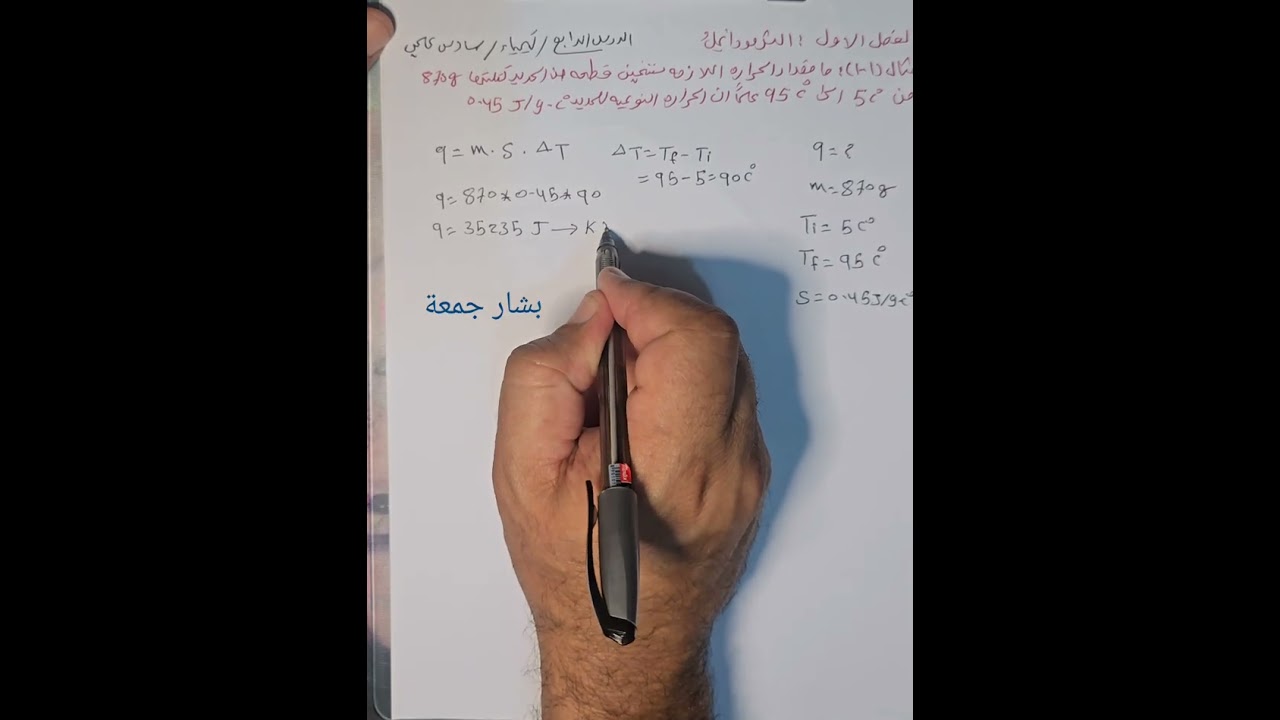 الفصل الاول / الثرموداينمك الدرس الرابع / كيمياء / سادس علمي
مثال (1-1): ما مقدار الحرارة اللازمة لتسخين قطعة من الحديد كتلتها 870g
من 5C° الى 95C° علماً ان الحرارة النوعية للحديد 0.45 J/g.C°
q = m . S . ΔT
ΔT = Tf - Ti
= 95 - 5 = 90C°
q = 870 * 0.45 * 90
q = 35235 J → K
q = ?
m = 870g
Ti = 5C°
Tf = 95C°
S = 0.45J/gC°
بشار جمعة